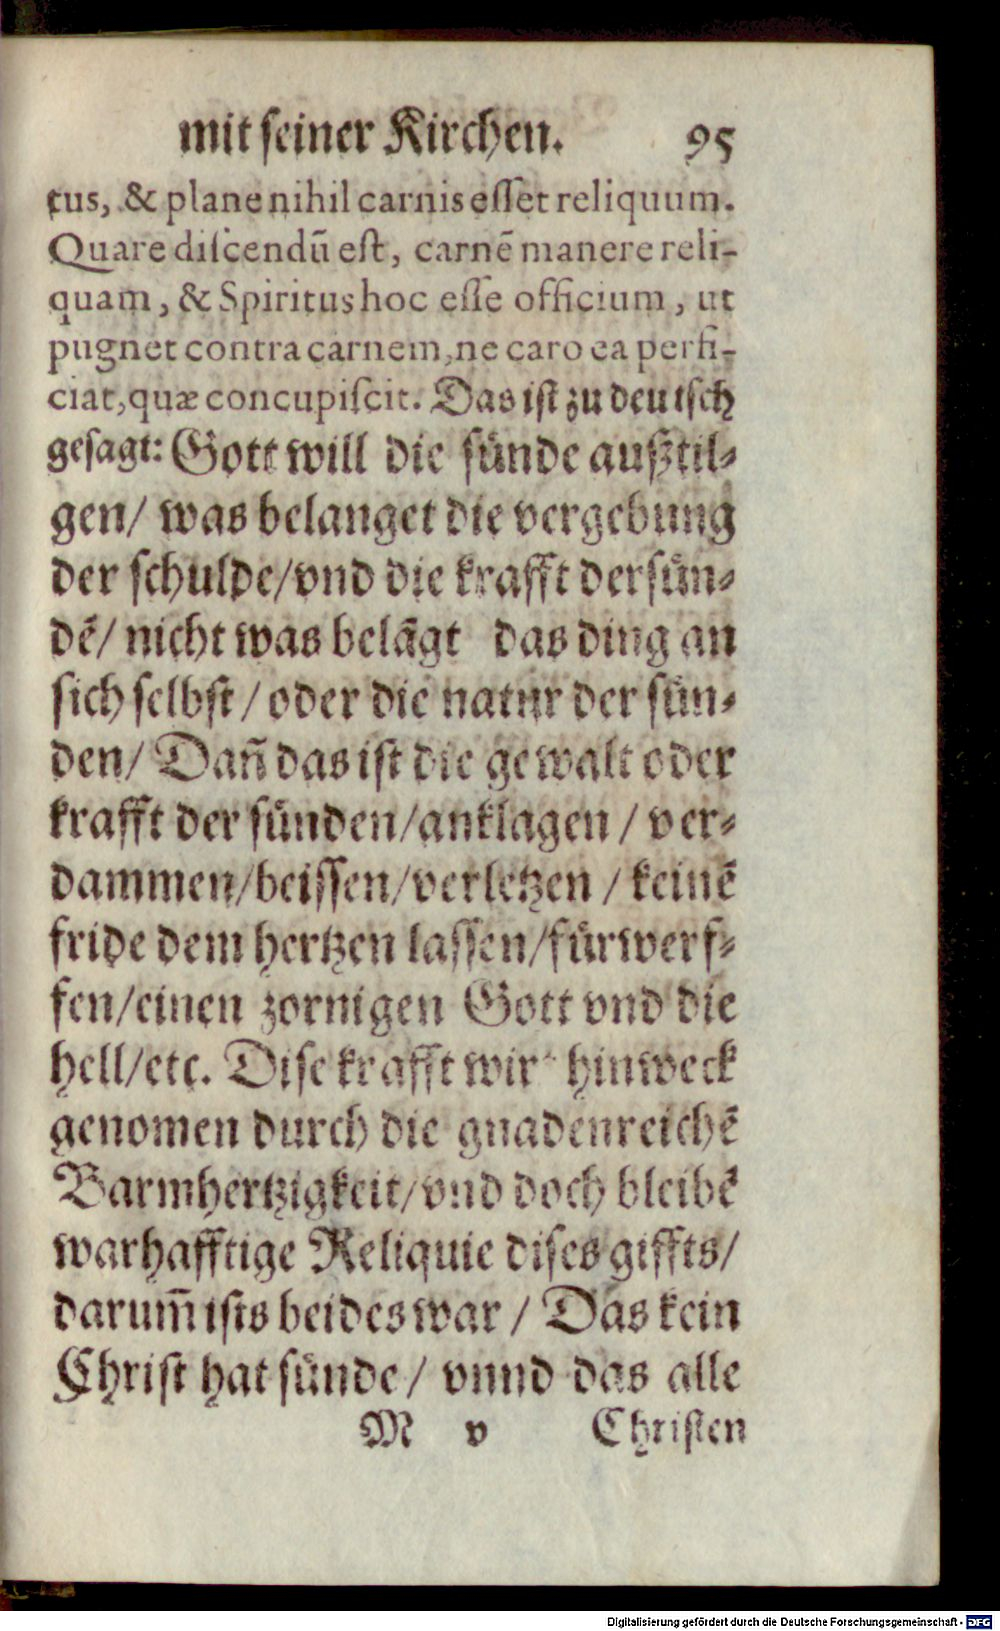 mit seiner Kirchen. 95
tus, & plane nihil carnis esset reliquum.
Quare discendū est, carnē manere reli-
quam, & Spiritus hoc esse officium, ut
pugnet contra carnem, ne caro ea perfi-
ciat, quæ concupiscit. Das ist zu deutsch
gesagt: Gott will die sünde außtil-
gen/ was belanget die vergebung
der schulde/ vnd die krafft der sün-
dē/ nicht was belāgt das ding an
sich selbst/ oder die natur der sün-
den/ Dañ das ist die gewalt oder
krafft der sünden/ anklagen/ ver-
dammen/ beissen/ verletzen/ keinē
fride dem hertzen lassen/ fürwerf-
fen/ einen zornigen Gott vnd die
hell/ etc. Dise krafft wir hinweck
genomen durch die gnadenreichē
Barmhertzigkeit/ vnd doch bleibē
warhafftige Reliquie dises giffts/
darum̄ ists beides war/ Das kein
Christ hat sünde/ vnnd das alle
M v Christen
Digitalisierung gefördert durch die Deutsche Forschungsgemeinschaft - DFG